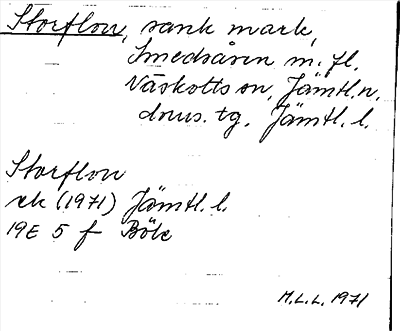 Storflon, sank mark,
Smedsåsen m. fl.
Näskotts sn, Jämtl. n.
doms. tg, Jämtl. l.
Storflon
ek (1971) Jämtl. l.
19E 5 f Böle
M.L.L. 1971